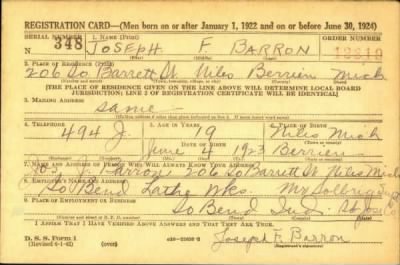 REGISTRATION CARD—(Men born on or after January 1, 1922 and on or before June 30, 1924)
SERIAL NUMBER 1. NAME (Print) ORDER NUMBER
N 348 JOSEPH F. BARRON
(First) (Middle) (Last)
2. PLACE OF RESIDENCE (Print)
206 So Barrett St. Niles Berrien Mich
(Number and street) (Town, township, village, or city) (County) (State)
[THE PLACE OF RESIDENCE GIVEN ON THE LINE ABOVE WILL DETERMINE LOCAL BOARD
JURISDICTION; LINE 2 OF REGISTRATION CERTIFICATE WILL BE IDENTICAL]
3. MAILING ADDRESS
same
4. TELEPHONE 5. AGE IN YEARS 6. PLACE OF BIRTH
494 J. 19 Niles Mich
DATE OF BIRTH
June 1923 Berrien
7. NAME AND ADDRESS OF PERSON WHO WILL ALWAYS KNOW YOUR ADDRESS
Barron 206 So Barrett St Niles Mich
8. EMPLOYER'S NAME AND ADDRESS
So Bend Lathe Wks.
9. PLACE OF EMPLOYMENT OR BUSINESS
So Bend Ind. St Jos Co
I AFFIRM THAT I HAVE VERIFIED ABOVE ANSWERS AND THAT THEY ARE TRUE.
D. S. S. Form 1
(Revised 6-1-42)
Joseph F. Barron
(Registrant's signature)